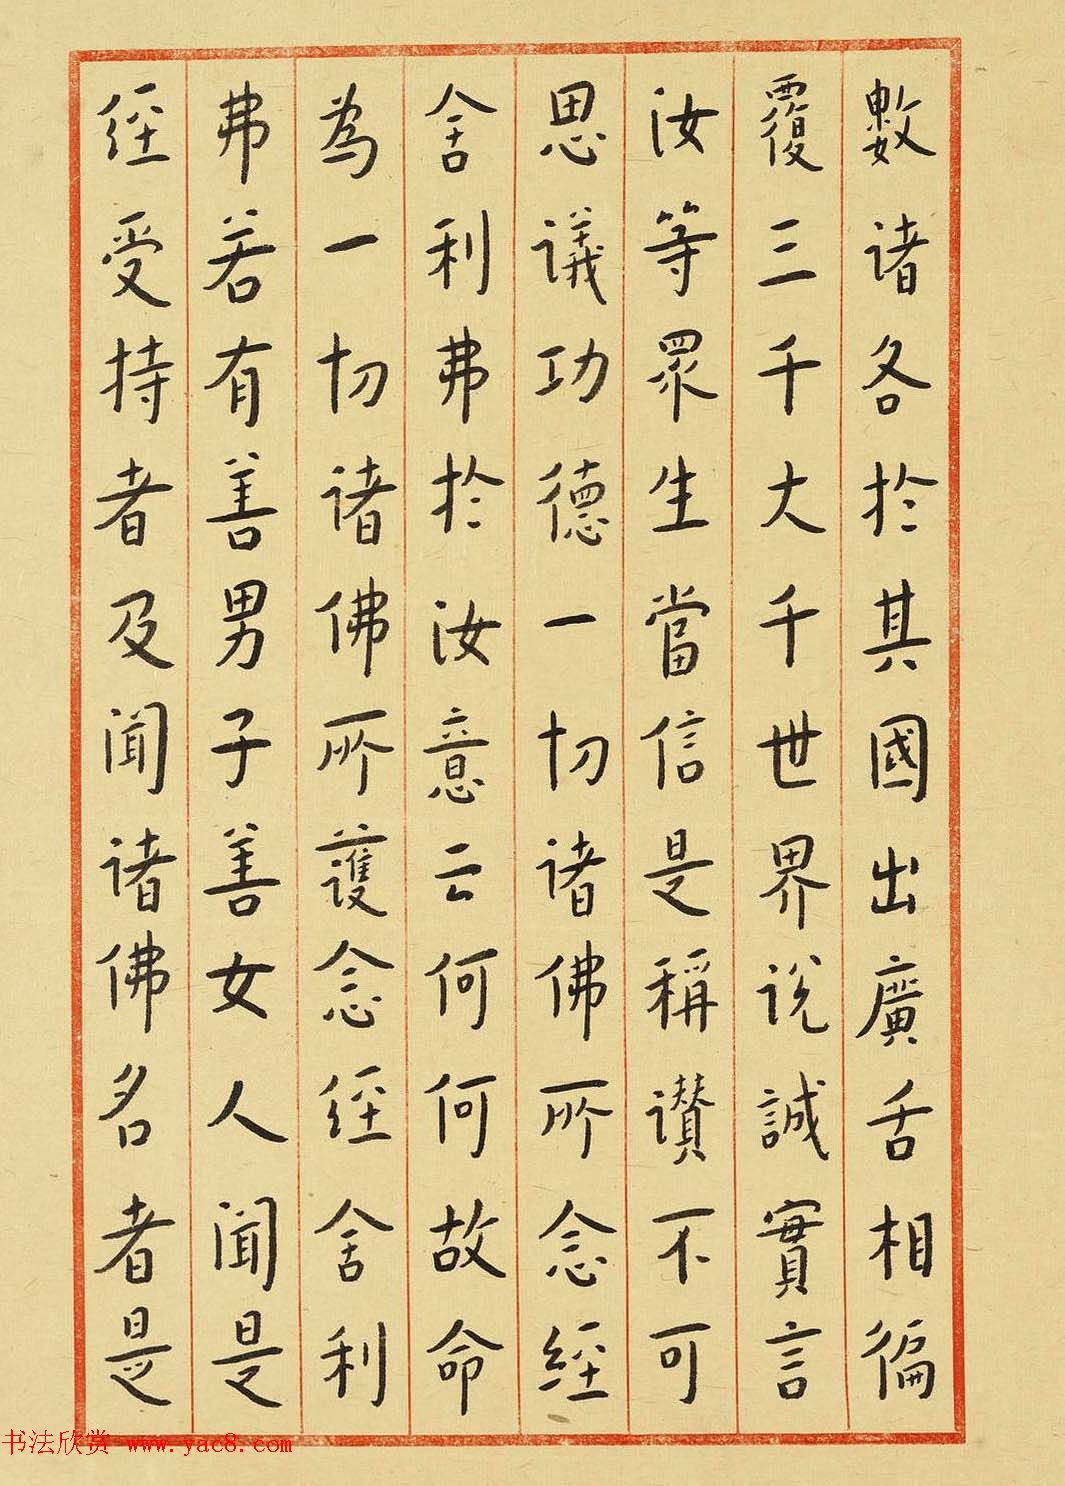 數諸各於其國出廣舌相徧
覆三千大千世界说誠實言
汝等眾生當信是稱讚不可
思議功德一切诸佛所念經
舍利弗於汝意云何何故命
為一切诸佛所護念經舍利
弗若有善男子善女人聞是
經受持者及聞诸佛名者是
书法欣赏 www.yac8.com